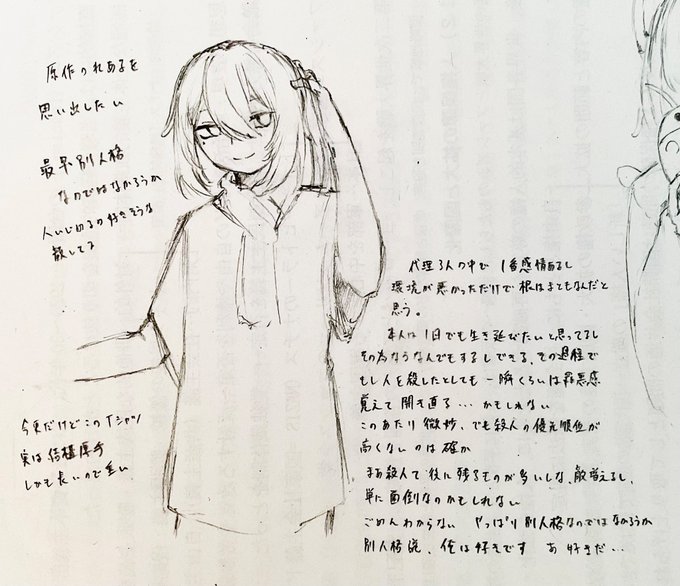 原作のれあるを
思い出したい
最早別人格
なのではなかろうか
人いじめるの好きそうな
顔してる
今更だけどこのTシャツ
実は結構厚手
しかも長いので重い
代理3人の中で 1番感情あるし
環境が悪かっただけで根はまともなんだと
思う。
本人は1日でも生き延びたいと思ってるし
その為ならなんでもするしできる、その過程で
もし人を殺したとしても一瞬くらいは罪悪感
覚えて開き直る…かもしれない
このあたり微妙、でも殺人の優先順位が
高くないのは確か
まあ殺人て後に残るものが多いしな、敵増えるし、
単に面倒なのかもしれない
ごめんわからない やっぱり別人格なのではなかろうか
別人格説、俺は好きです あ 好きだ…